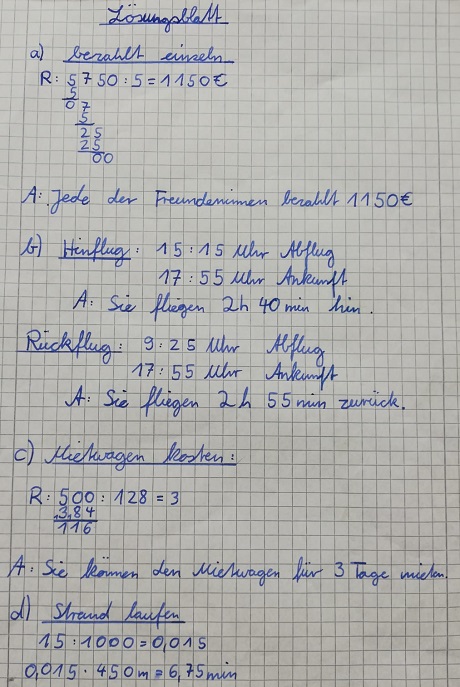 Lösungsblatt
a) bezahlt einzeln
R: 5750 : 5 = 1150€
5
07
5
25
25
00
A: Jede der Freundeninnen bezahlt 1150€
b) Hinflug: 15:15 Uhr Abflug
17:55 Uhr Ankunft
A: Sie fliegen 2h 40 min hin.
Rückflug: 9:25 Uhr Abflug
17:55 Uhr Ankunft
A: Sie fliegen 2h 55 min zurück.
c) Mietwagen kosten:
R: 500 : 128 = 3
384
116
A: Sie können den Mietwagen für 3 Tage mieten.
d) Strand laufen
15 : 1000 = 0,015
0,015 · 450m = 6,75min